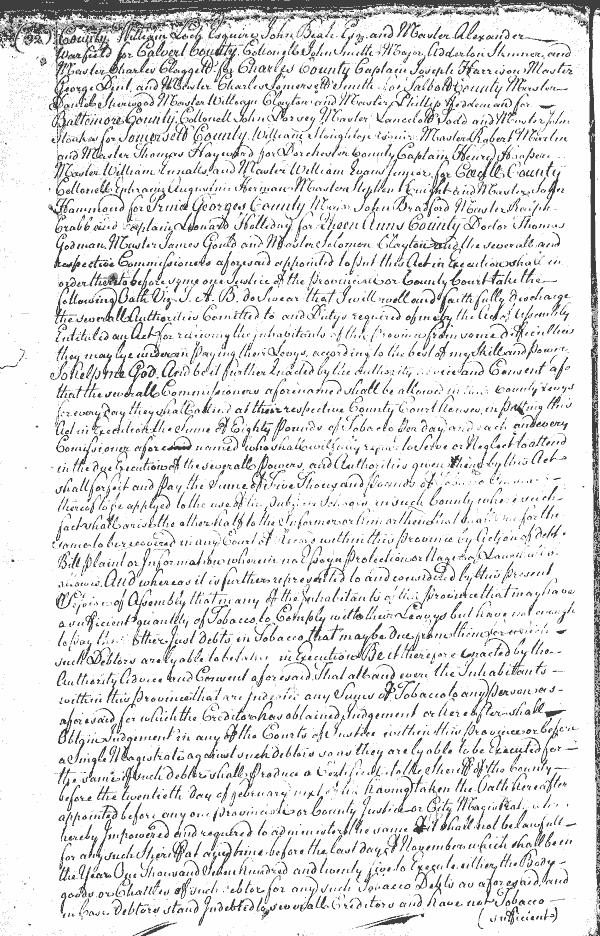 (32) County William Lock Esquire John Beale Esq. and Master Alexander
Warfield for Calvert County Collonell John Smith Major Adderton Skinner, and
Master Charles Claggett for Charles County Captain Joseph Harrison Master
George Dent, and Master Charles Somersett Smith for Talbott County Master
Daniel Sherwood Master William Clayton and Master Phillip for
Baltimore County Collonell John Dorsey Master Lancelott Todd and Master John
Stokes for Somersett County William Stoughton Master Robert Martin
and Master Thomas Hayward for Dorchester County Captain Henry Hooper
Master William Ennalls, and Master William Evans Junior for Caecill County
Collonell Ephraim Augustine Herman Master Stephen Knight and Master John
Hammond for Prince Georges County Major John Bradford Master Ralph
Crabb and Captain Leonard Holliday for Queen Anns County Doctor Thomas
Godman, Master James Gould and Master Solomon Clayton and the severall and
respective Commissioners aforesaid appointed to put this Act in Execution shall in
order thereto before some one Justice of the Provinciall or County Court take the
following Oath Viz. I. A. B. do Swear that I will well and faithfully discharge
the severall Authorities Comitted to and Dutys required of me by the Act of Assembly
Entituled an Act for relieving the Inhabitants of this Province from some difficulties
they may lye under in Paying their Levys, according to the best of my Skill and Power
So help me God. And be it further Enacted by the Authority Advice and Consent afo
that the severall Commissioners aforenamed shall be allowed in their County Levys
for every day they shall attend at their respective County Court Houses, in putting this
Act in Execution the Sume of Eighty Pounds of Tobacco Per day and each and every
Comissioner aforesaid named who shall willfully refuse to Serve or Neglect to attend
in the due Execution of the severall Powers, and Authorities given them by this Act
shall forfeit and Pay the Sume of Five Thousand Pounds of Tobacco
thereof to be applyed to the use of the Publick Schools in such County where such
fact shall arise the other half to the Informer or him or them that shall sue for the
same to be recovered in any Court of Record within this Province by Action of debt
Bill plaint or Information wherein no Essoyn Protection or Wager of Law
allowed. And whereas it is further represented to and considered by this present
Session of Assembly that many of the Inhabitants of this Province that may have
a sufficient quantity of Tobacco to Comply with their Leavys but have not enough
to pay their other Just debts in Tobacco that may be due from them for which
such Debtors are lyable to be taken in Execution Be it therefore Enacted by the
Authority Advice and Consent aforesaid That all and every the Inhabitants
within this Province that are Indebted any Sumes of Tobacco to any person as
aforesaid for which the Creditor has obtained Judgement or hereafter shall
Obtain Judgement in any of the Courts of Justice within this Province or before
a Single Magistrate against such debtors soas they are lyable to be Executed for
the same if such debtor shall Produce a Certificate to the Sheriff of the County
before the twentieth day of february next, of his having taken the Oath hereafter
appointed before any one Provinciall or County Justice or City Magistrate
hereby Impowered and required to administer the same it shall not be lawfull
for any such Sheriff at any time before the last day of November which shall be in
the Year One Thousand Seven Hundred and twenty five to Execute either the Body
goods or Chattles of such debtor for any such Tobacco Debts as aforesaid, and
in Case Debtors stand Indebted to severall Creditors and have not Tobacco
(sufficient)